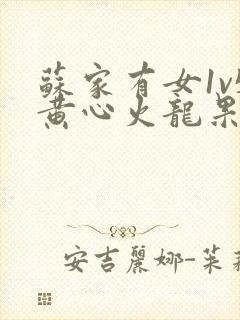 蘇家有女1v
黃心火龍果
安吉麗娜-茱